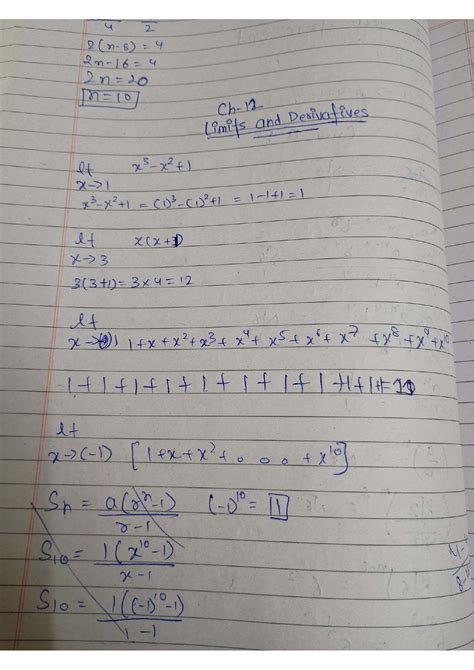 4 2
2(n-8) = 4
2n-16 = 4
2n = 20
n = 10
Ch-12
Limits and Derivatives
lt x³-x²+1
x→1
x³-x²+1 = (1)³-(1)²+1 = 1-1+1 = 1
lt x(x+1)
x→3
3(3+1) = 3×4 = 12
lt
x→(1) 1+x+x²+x³+x⁴+x⁵+x⁶+x⁷+x⁸+x⁹+x¹⁰
1+1+1+1+1+1+1+1+1+1+1=11
lt
x→(-1) [1+x+x²+. . . +x¹⁰]
Sn = a(rⁿ-1) (-1)¹⁰ = 1
r-1
S₁₀ = 1(x¹⁰-1)
x-1
S₁₀ = 1((-1)¹⁰-1)
1-1